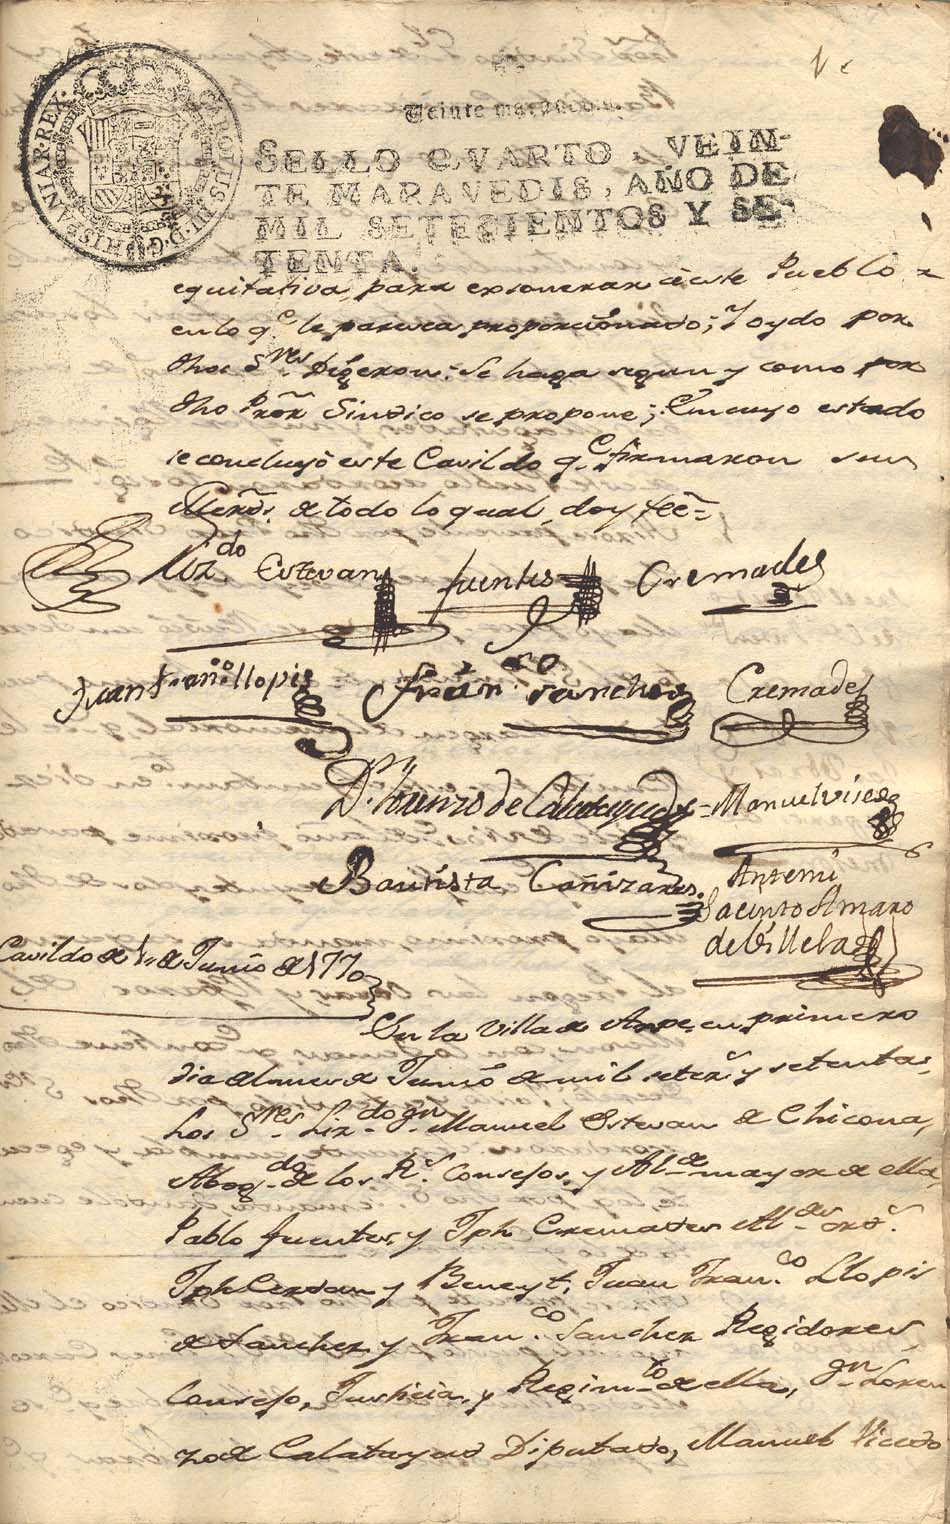 CAROLUS III D. G. HISPANIAR. REX.
Veinte maravedis.
SELLO QVARTO, VEIN-
TE MARAVEDIS, AÑO DE
MIL SETECIENTOS Y SE-
TENTA.
equitativa, para exonerar à este Pueblo
en lo q.e le paresca proporcionado; Y oydo por
dhos S.res Digeron: Se haga segun y como por
dho Pror Sindico se propone; En cuyo estado
se concluyó este Cavildo q.e firmaron sus
Merds. de todo lo qual, doy feé=
Liz.do Estevan fuentes Cremades
Juan Fran.co Llopis Fran.co Sanchez Cremades
D.n Lorenzo de Calatayud = Manuel Visedo
Bautista Cañizares. Antemi
Jacinto Amaro
de Villela
Cavildo de 1.. de Junio de 1770
En la Villa de Aspe, en primero
dia del mes de Junio de mil seter.s y setenta,
Los S.res Liz.do D.n Manuel Estevan de Chicona,
Abog.do de los R.s Consejos, y Al.de mayor de ella,
Pablo fuentes, y Jph Cremades Al.des ord.s
Jph Cerdan y Beneyt, Juan Fran.co Llopis
de Sanchez y Fran.co Sanchez Regidores,
Consejo, Justicia, y Regim.to de ella, D.n Loren
zo de Calatayud Diputado, Manuel Vicedo